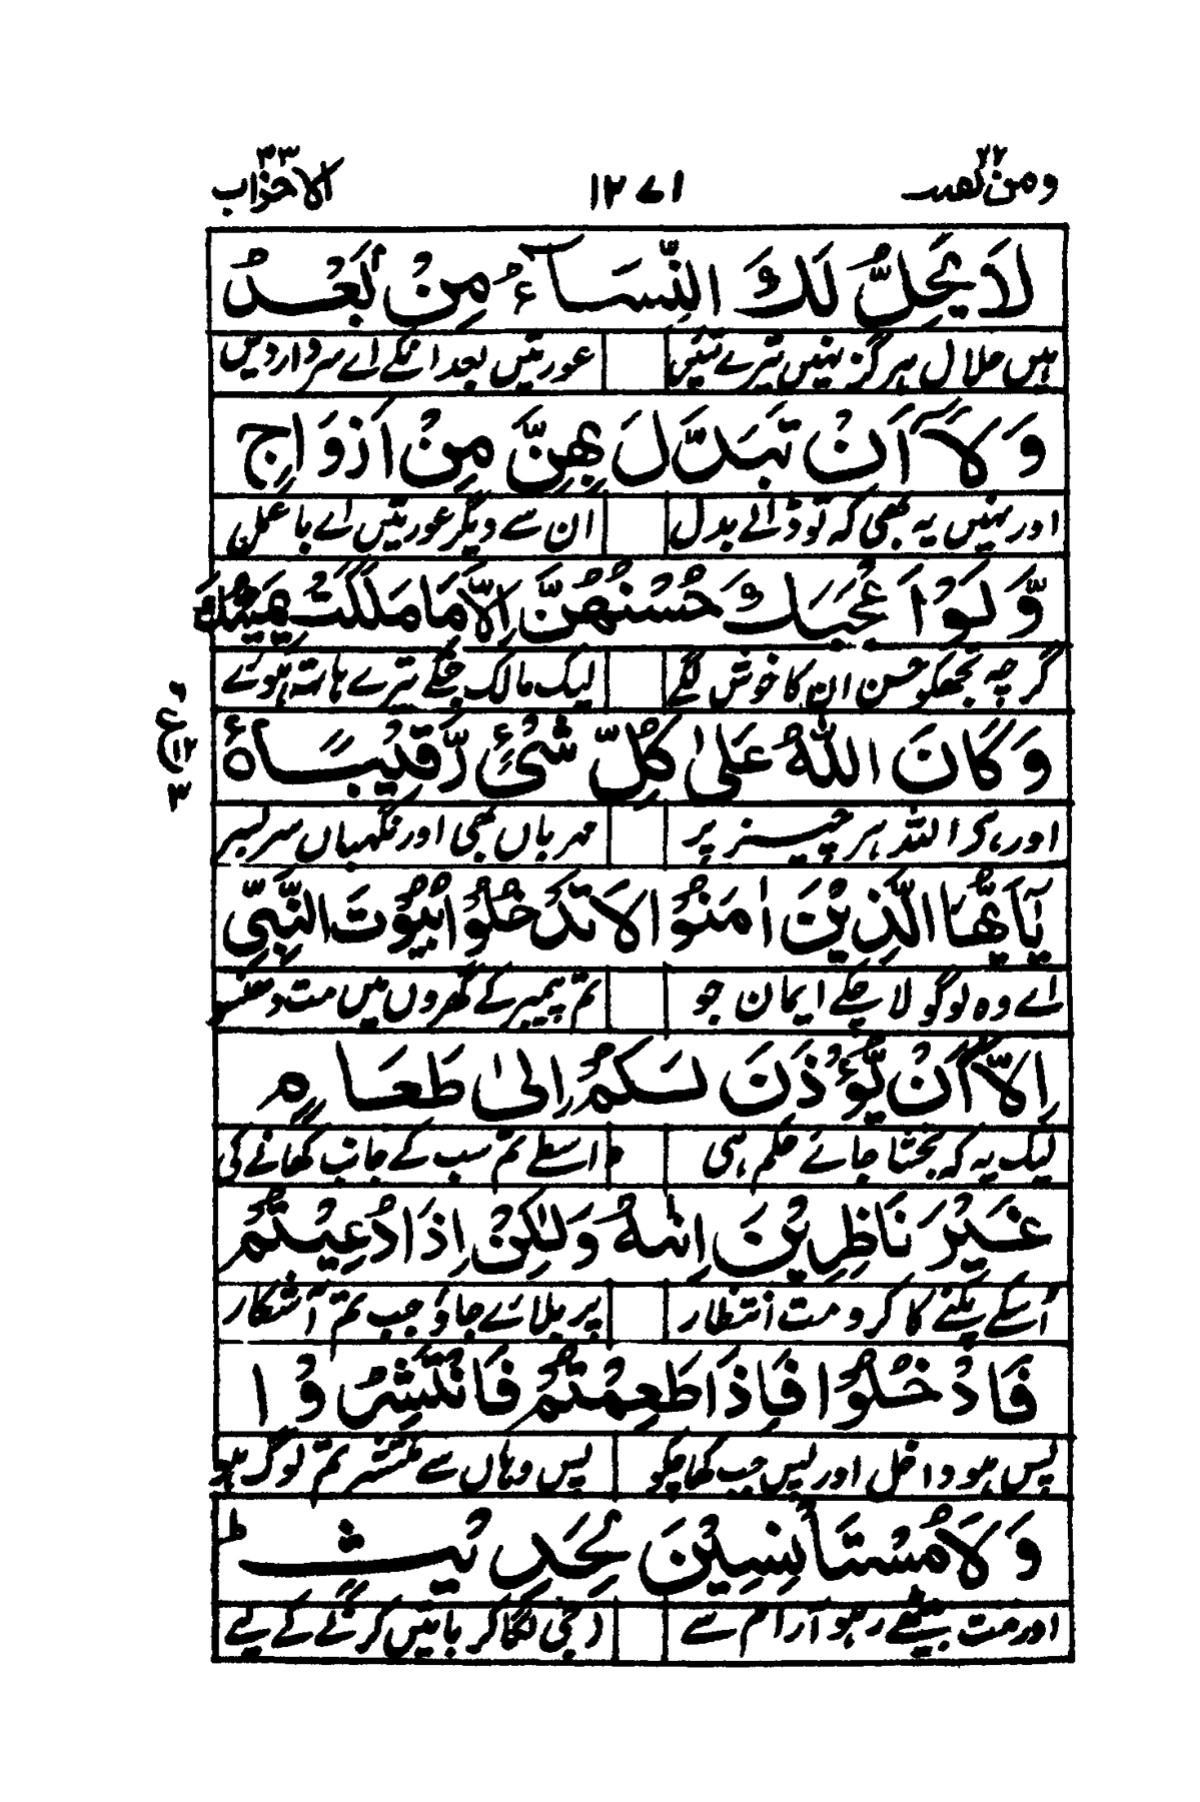 ومن یقنت ۲۲ ۱۲۷۱ الاحزاب ۳۳
لَا يَحِلُّ لَكَ النِّسَآءُ مِنْۢ بَعْدُ
ہیں حلال ہرگز نہیں تیرے تئیں عورتیں بعد انکے اے سردار دیں
وَلَآ اَنْ تَبَدَّلَ بِهِنَّ مِنْ اَزْوَاجٍ
اور نہیں یہ بھی کہ تو ڈالے بدل ان سے دیگر عورتیں اے با عمل
وَّلَوْ اَعْجَبَكَ حُسْنُهُنَّ اِلَّا مَا مَلَكَتْ يَمِيْنُكَ
گرچہ تجھکو حسن ان کا خوش لگے لیک مالک جنکے تیرے ہاتھ ہوئے
وَكَانَ اللّٰهُ عَلٰى كُلِّ شَیْءٍ رَّقِيْبًا
اور ہے اللہ ہر چیز پر مہرباں بھی اور نگہباں سر بسر
ع ۳
يٰۤاَيُّهَا الَّذِيْنَ اٰمَنُوْا لَا تَدْخُلُوْا بُيُوْتَ النَّبِيِّ
اے وہ لوگو لا چکے ایمان جو تم پیمبر کے گھروں میں مت دھنسو
اِلَّاۤ اَنْ يُّؤْذَنَ لَكُمْ اِلٰى طَعَامٍ
لیک یہ کہ بخشا جائے حکم ہی واسطے تم سب کے جانب کھانے کی
غَيْرَ نَاظِرِيْنَ اِنٰىهُ وَلٰكِنْ اِذَا دُعِيْتُمْ
اُسکے پکنے کا کرو مت انتظار پر بلائے جاؤ جب تم آشکار
فَادْخُلُوْا فَاِذَا طَعِمْتُمْ فَانْتَشِرُوْا
پس ہو داخل اور پس جب کھا چکو پس وہاں سے منتشر تم لوگ ہو
وَلَا مُسْتَاْنِسِيْنَ لِحَدِيْثٍ ط
اور مت بیٹھے رہو آرام سے جی لگا کر باتیں کرنے کے لیے